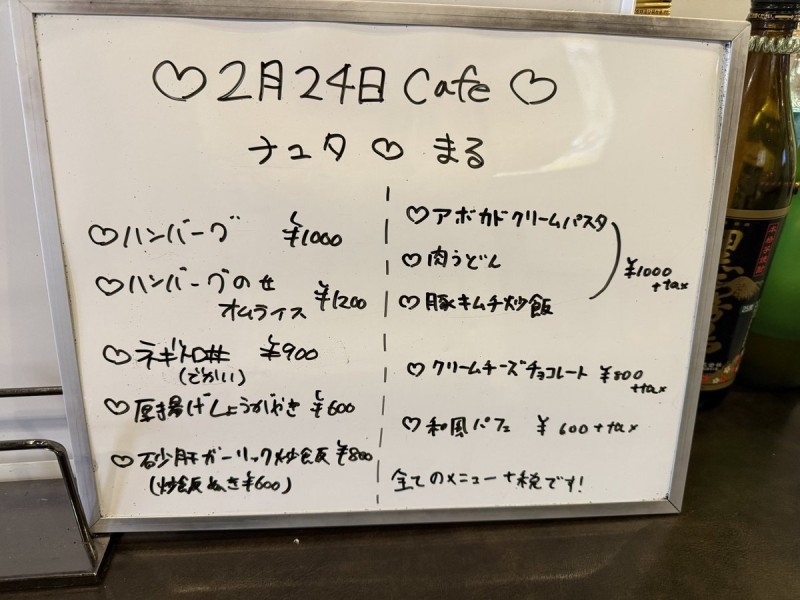 ♡2月24日 Cafe♡
ナユタ♡まる
♡ハンバーグ ¥1000
♡ハンバーグのせ
オムライス ¥1200
♡ネギトロ丼 ¥900
(でかい)
♡厚揚げしょうがやき ¥600
♡砂肝ガーリック炒飯 ¥800
(炒飯ぬき¥600)
♡アボカドクリームパスタ
♡肉うどん
♡豚キムチ炒飯
¥1000
+tax
♡クリームチーズチョコレート ¥800
+tax
♡和風パフェ ¥600+tax
全てのメニュー+税です!
黒